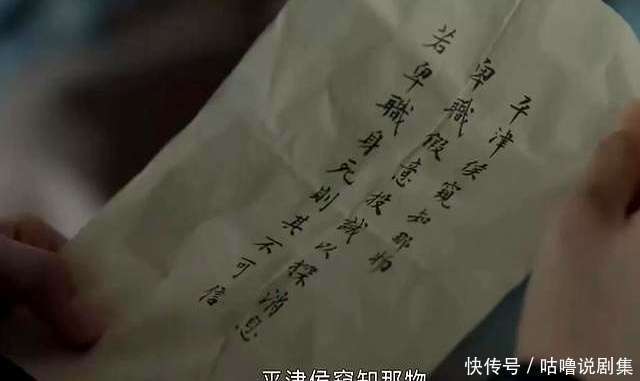 平津侯窺知那物
卑職假意投誠以探消息
若卑職身死則其不可信
平津侯窥知那物
快传号 / 咕噜说剧集